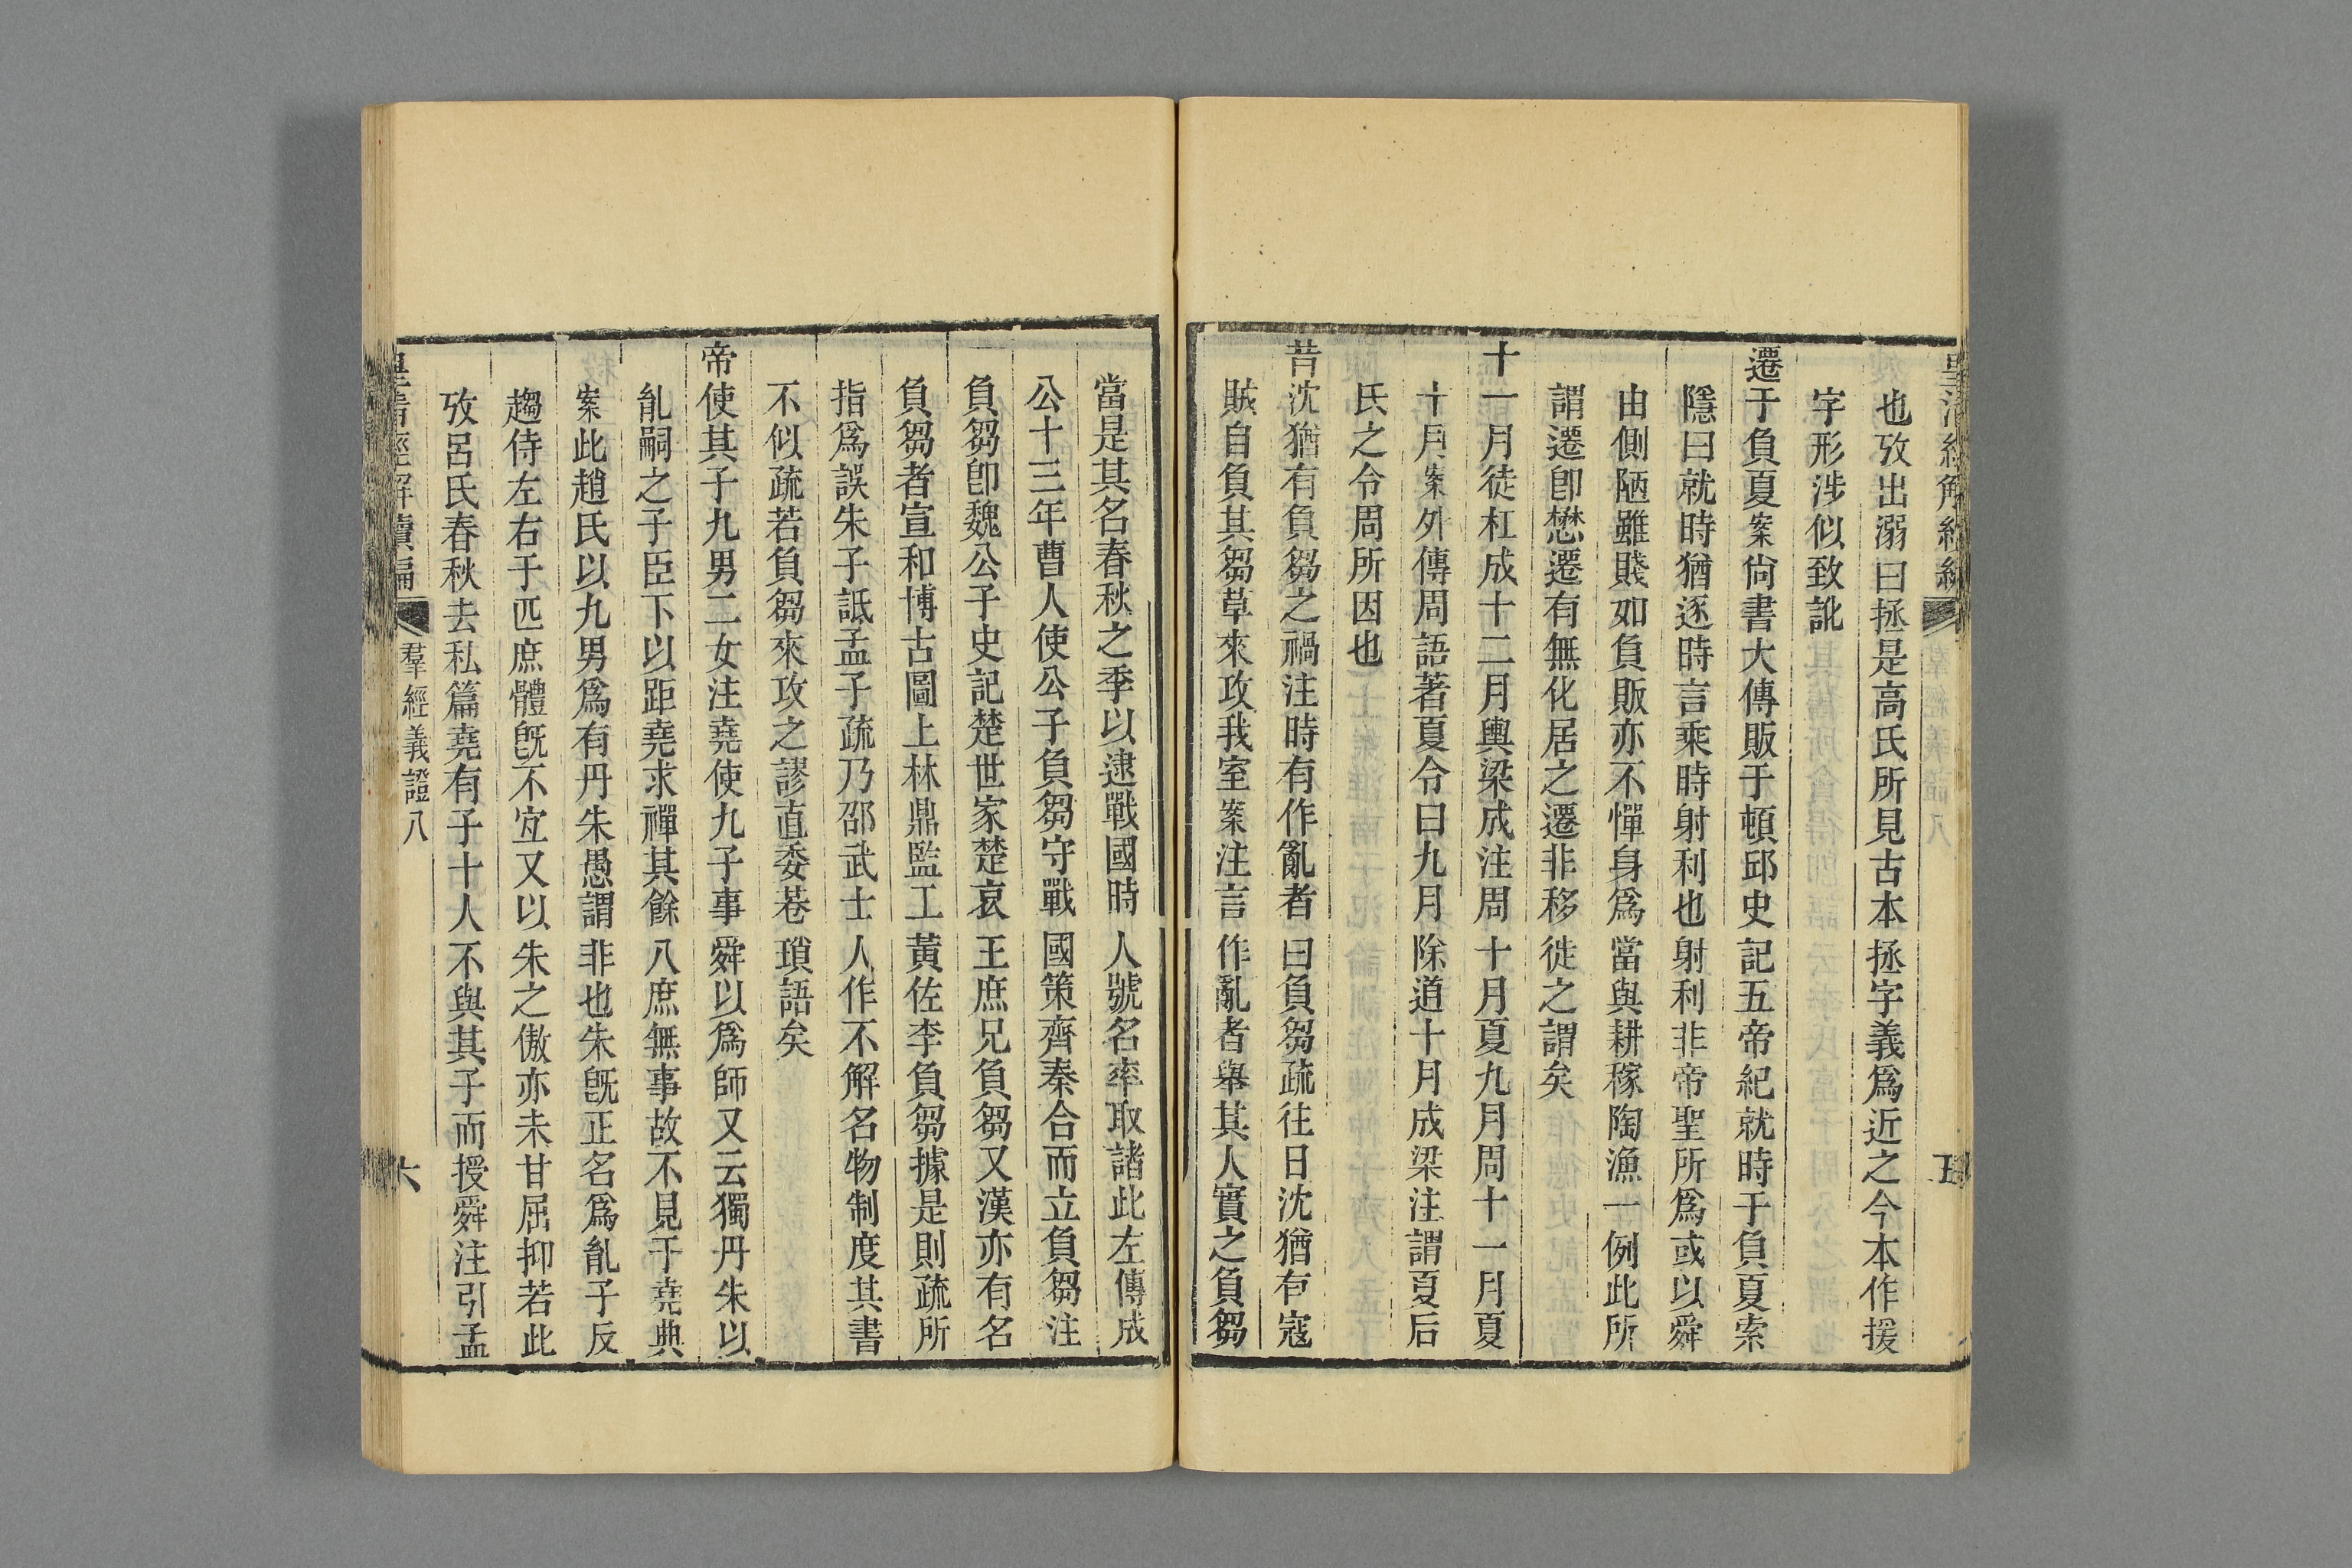 也攷出溺曰拯是高氏所見古本拯字義爲近之今本作援
字形涉似致訛
遷于負夏案尙書大傳販于頓邱史記五帝紀就時于負夏索
隱曰就時猶逐時言乘時射利也射利非帝聖所爲或以舜
由側陋雖賤如負販亦不憚身爲當與耕稼陶漁一例此所
謂遷卽懋遷有無化居之遷非移徙之謂矣
十一月徒杠成十二月輿梁成注周十月夏九月周十一月夏
十月案外傳周語著夏令曰九月除道十月成梁注謂夏后
氏之令周所因也
昔沈猶有負芻之禍注時有作亂者曰負芻疏往日沈猶有寇
賊自負其芻草來攻我室案注言作亂者舉其人實之負芻
當是其名春秋之季以逮戰國時人號名率取諸此左傳成
公十三年曹人使公子負芻守戰國策齊秦合而立負芻注
負芻卽魏公子史記楚世家楚哀王庶兄負芻又漢亦有名
負芻者宣和博古圖上林鼎監工黃佐李負芻據是則疏所
指爲誤朱子詆孟子疏乃邵武士人作不解名物制度其書
不似疏若負芻來攻之謬直委巷瑣語矣
帝使其子九男二女注堯使九子事舜以爲師又云獨丹朱以
胤嗣之子臣下以距堯求禪其餘八庶無事故不見于堯典
案此趙氏以九男爲有丹朱愚謂非也朱旣正名爲胤子反
趨侍左右于匹庶體旣不宜又以朱之傲亦未甘屈抑若此
攷呂氏春秋去私篇堯有子十人不與其子而授舜注引孟
皇淸經解續編
羣經義證八
六
五